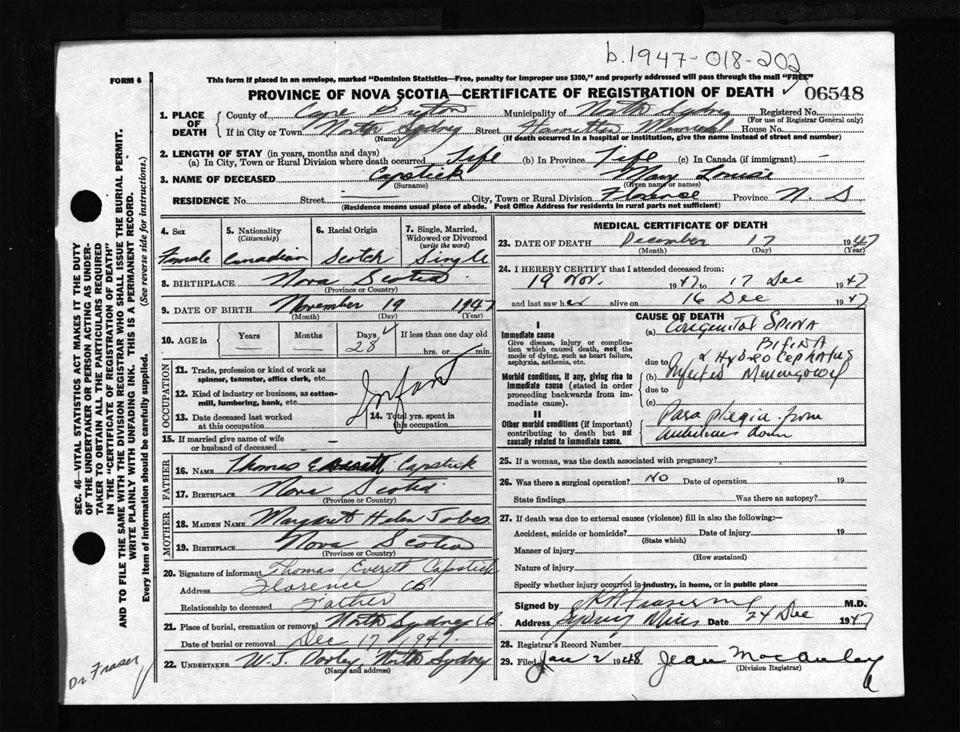 b.1947-018-202
FORM 6
This form if placed in an envelope, marked "Dominion Statistics—Free, penalty for improper use $300," and properly addressed will pass through the mail "FREE"
PROVINCE OF NOVA SCOTIA—CERTIFICATE OF REGISTRATION OF DEATH
06548
1. PLACE OF DEATH
County of Cape Breton Municipality of North Sydney Registered No.
(For use of Registrar General only)
If in City or Town North Sydney Street Hamilton Memorial House No.
(Name) (If death occurred in a hospital or institution, give the name instead of street and number)
2. LENGTH OF STAY (in years, months and days)
(a) In City, Town or Rural Division where death occurred Life (b) In Province Life (c) In Canada (if immigrant) —
3. NAME OF DECEASED Capstick Mary Louise
(Surname) (Given name or names)
RESIDENCE No. Street City, Town or Rural Division Florence Province N. S
(Residence means usual place of abode. Post Office Address for residents in rural parts not sufficient)
4. Sex
Female
5. Nationality
(Citizenship)
Canadian
6. Racial Origin
Scotch
7. Single, Married, Widowed or Divorced
(write the word)
Single
8. BIRTHPLACE Nova Scotia
(Province or Country)
9. DATE OF BIRTH November 19 1947
(Month) (Day) (Year)
10. AGE in Years Months Days If less than one day old
28 hrs. or min.
OCCUPATION
11. Trade, profession or kind of work as spinner, teamster, office clerk, etc.
12. Kind of industry or business, as cotton-mill, lumbering, bank, etc.
Infant
13. Date deceased last worked at this occupation
14. Total yrs. spent in this occupation
15. If married give name of wife or husband of deceased
FATHER
16. NAME Thomas Everett Capstick
17. BIRTHPLACE Nova Scotia
(Province or Country)
MOTHER
18. MAIDEN NAME Margaret Helen Jobes
19. BIRTHPLACE Nova Scotia
(Province or Country)
20. Signature of informant Thomas Everett Capstick
Address Florence CB
Relationship to deceased Father
21. Place of burial, cremation or removal North Sydney C.B.
Date of burial or removal Dec 17 1947
22. UNDERTAKER W. J. Dooley North Sydney
(Name and address)
MEDICAL CERTIFICATE OF DEATH
23. DATE OF DEATH December 17 1947
(Month) (Day) (Year)
24. I HEREBY CERTIFY that I attended deceased from:
19 Nov. 1947 to 17 Dec 1947
and last saw her alive on 16 Dec 1947
CAUSE OF DEATH
I
Immediate cause
Give disease, injury or complication which caused death, not the mode of dying, such as heart failure, asphyxia, asthenia, etc.
(a) Congenital SPINA
BIFIDA
due to & HYDROCEPHALUS
Morbid conditions, if any, giving rise to immediate cause (stated in order proceeding backwards from immediate cause).
(b) Meningocele
due to
(c)
II
Other morbid conditions (if important) contributing to death but not causally related to immediate cause.
Paraplegia from
umbilicus down
25. If a woman, was the death associated with pregnancy?
26. Was there a surgical operation? NO Date of operation 19
State findings Was there an autopsy?
27. If death was due to external causes (violence) fill in also the following:—
Accident, suicide or homicide? Date of injury 19
(State which)
Manner of injury
(How sustained)
Nature of injury
Specify whether injury occurred in industry, in home, or in public place
Signed by M.D.
Address Sydney Mines Date 24 Dec 1947
28. Registrar's Record Number
29. Filed Jan 2 1948 Jean MacAulay
(Division Registrar)
SEC. 46—VITAL STATISTICS ACT MAKES IT THE DUTY
OF THE UNDERTAKER OR PERSON ACTING AS UNDER-
TAKER TO OBTAIN ALL THE PARTICULARS REQUIRED
IN THE "CERTIFICATE OF REGISTRATION OF DEATH"
AND TO FILE THE SAME WITH THE DIVISION REGISTRAR WHO SHALL ISSUE THE BURIAL PERMIT.
WRITE PLAINLY WITH UNFADING INK. THIS IS A PERMANENT RECORD.
Every item of information should be carefully supplied. (See reverse side for instructions.)
Dr Fraser